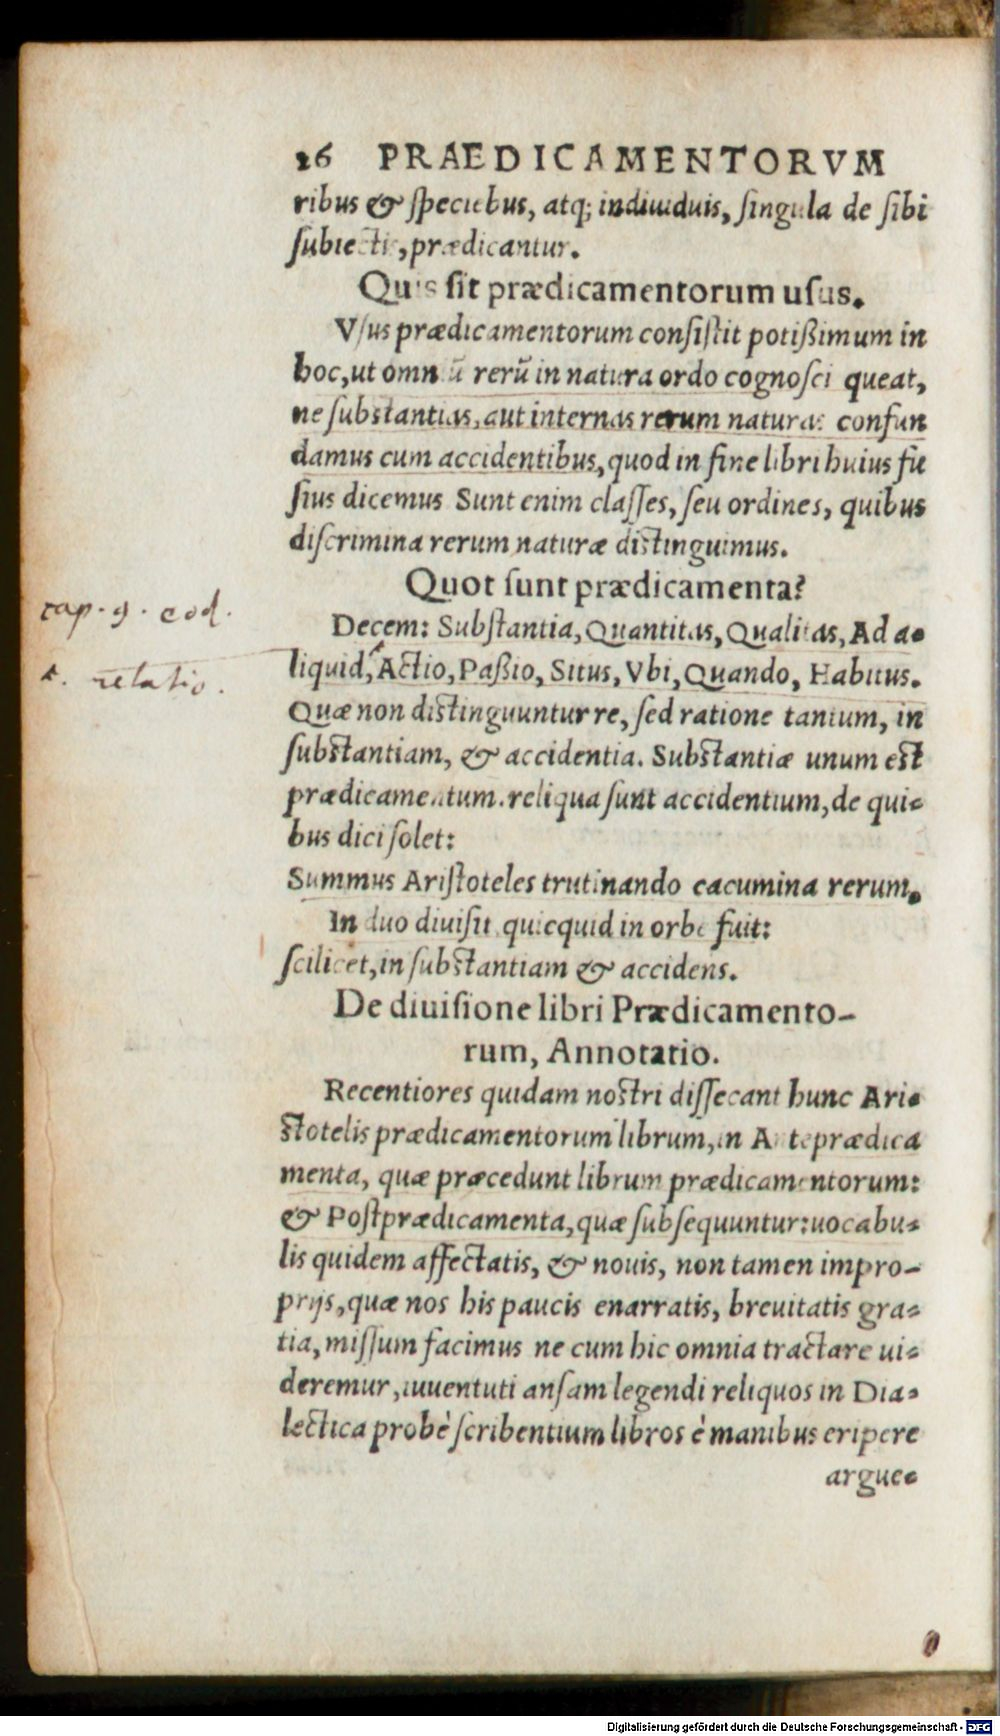 26 PRAEDICAMENTORVM
ribus & speciebus, atq; indiuiduis, singula de sibi
subiectis, prædicantur.
Quis sit prædicamentorum usus.
Vsus prædicamentorum consistit potißimum in
hoc, ut omniũ rerũ in natura ordo cognosci queat,
ne substantias, aut internas rerum naturas confun
damus cum accidentibus, quod in fine libri huius fu
sius dicemus Sunt enim classes, seu ordines, quibus
discrimina rerum naturæ distinguimus.
Quot sunt prædicamenta?
cap. 9. eod.
Decem: Substantia, Quantitas, Qualitas, Ad a-
liquid, Actio, Paßio, Situs, Vbi, Quando, Habitus.
relatio.
Quæ non distinguuntur re, sed ratione tantum, in
substantiam, & accidentia. Substantiæ unum est
prædicamentum. reliqua sunt accidentium, de qui-
bus dici solet:
Summus Aristoteles trutinando cacumina rerum,
In duo diuisit quicquid in orbe fuit:
scilicet, in substantiam & accidens.
De diuisione libri Prædicamento-
rum, Annotatio.
Recentiores quidam nostri dissecant hunc Ari-
stotelis prædicamentorum librum, in Anteprædica
menta, quæ præcedunt librum prædicamentorum:
& Postprædicamenta, quæ subsequuntur: uocabu-
lis quidem affectatis, & nouis, non tamen impro-
prijs, quæ nos his paucis enarratis, breuitatis gra-
tia, missum facimus ne cum hic omnia tractare ui-
deremur, iuuentuti ansam legendi reliquos in Dia-
lectica probè scribentium libros è manibus eripere
argue-
Digitalisierung gefördert durch die Deutsche Forschungsgemeinschaft - DFG